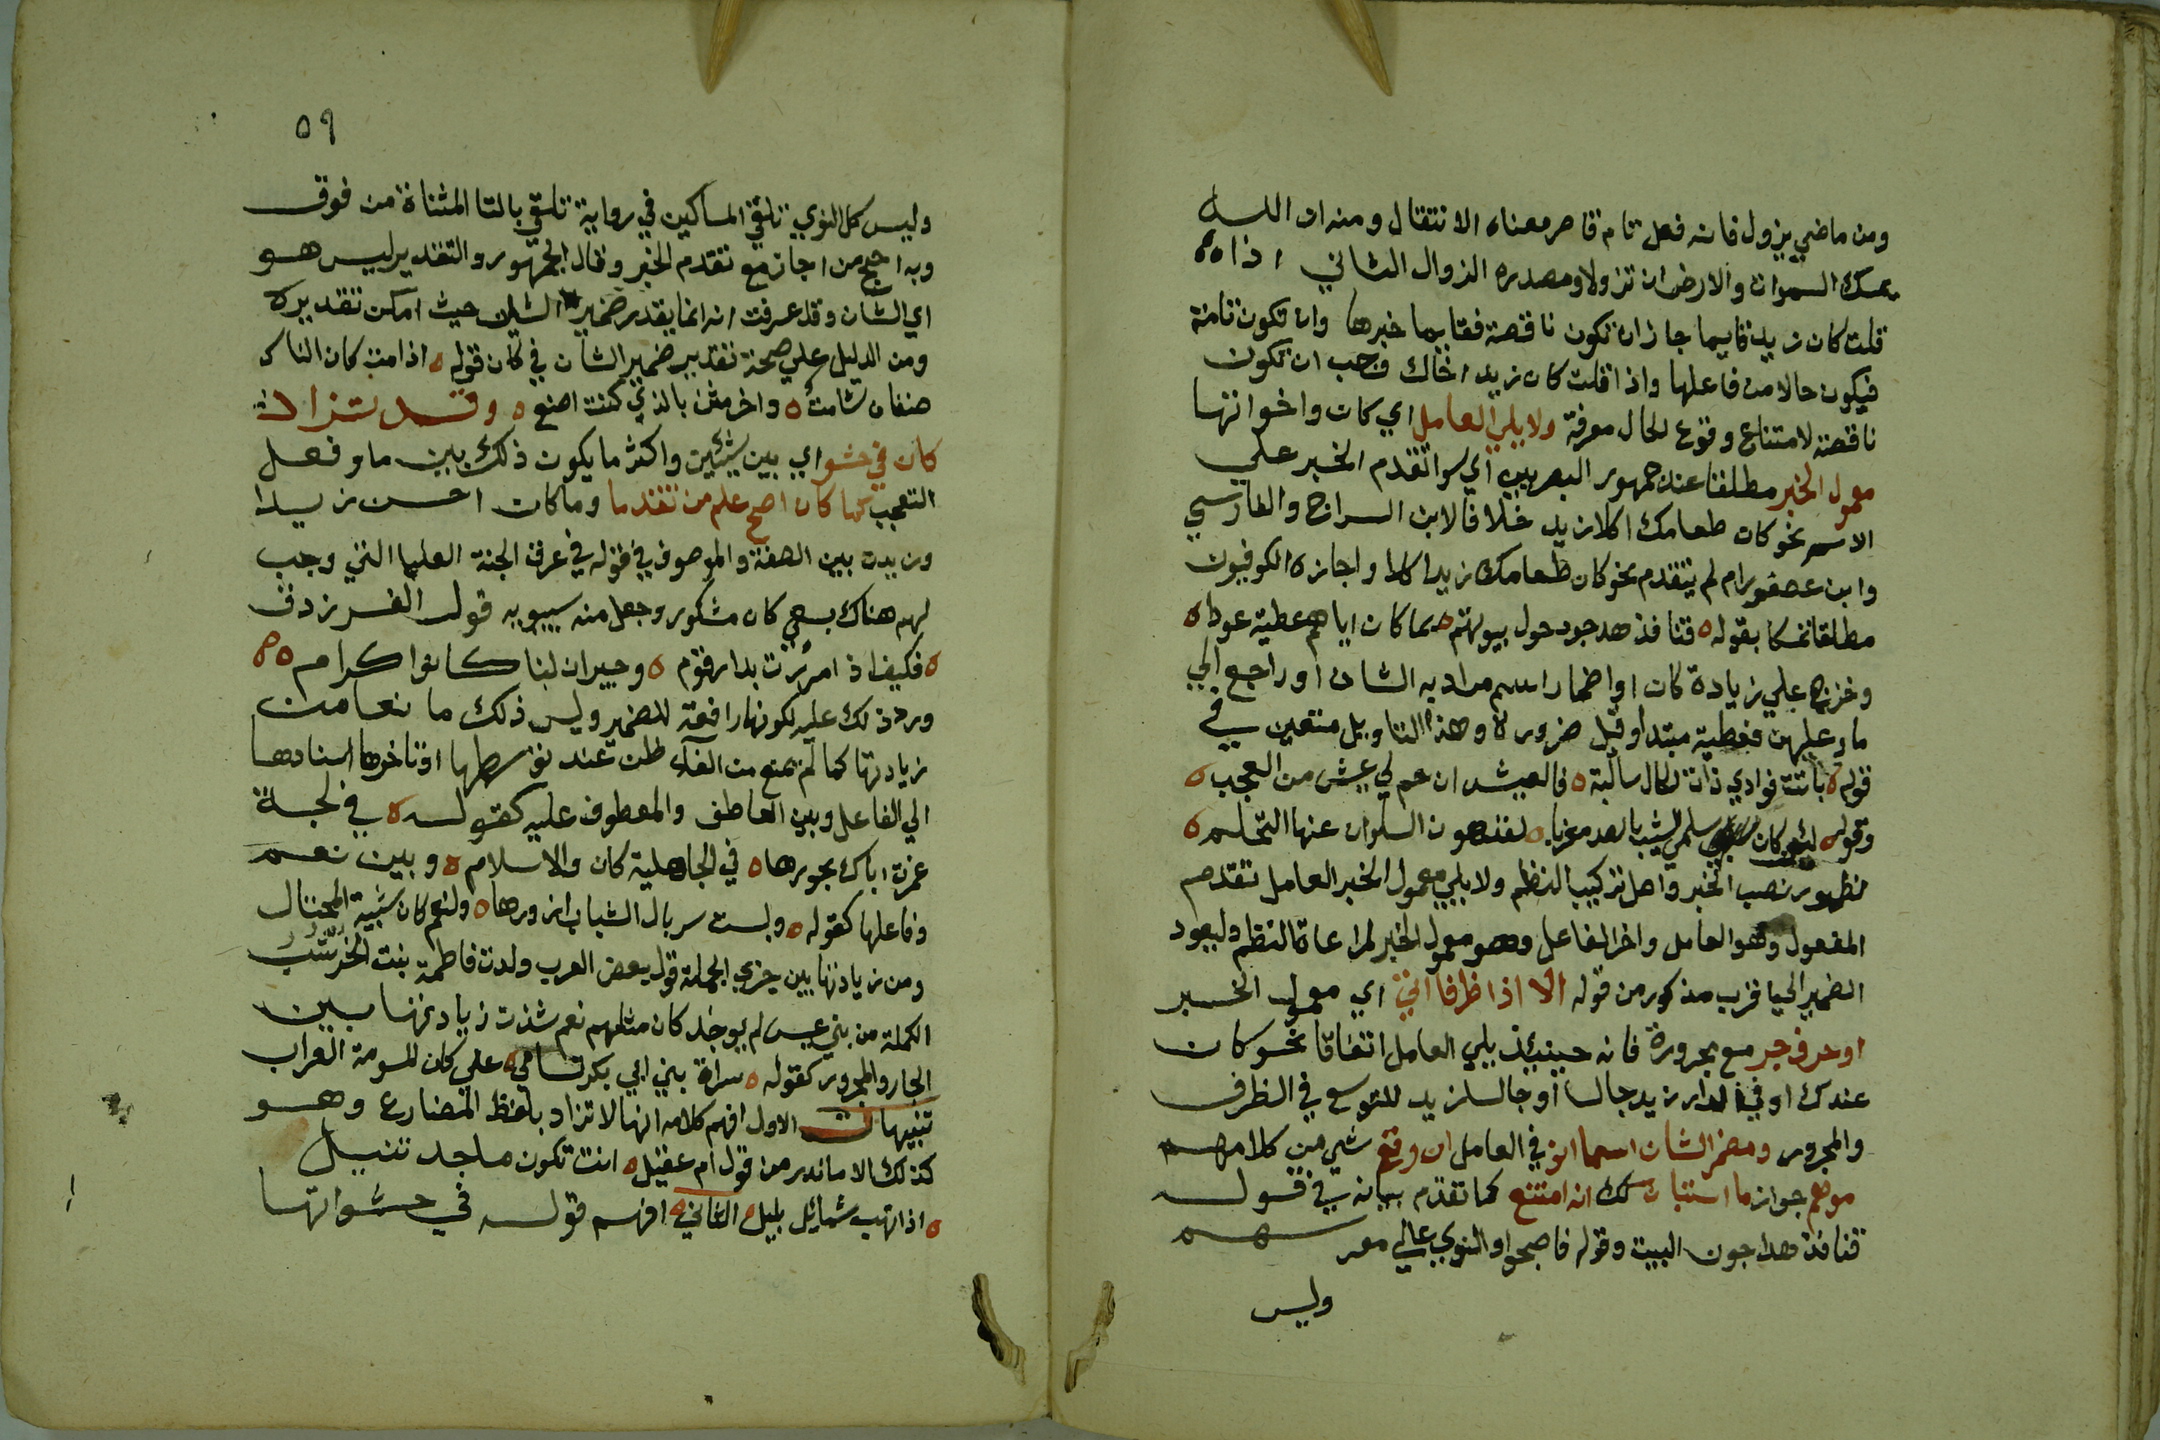 ومن ماضي يزول فانه فعل تام قاصر معناه الانتقال ومنه ان الله
يمسك السموات والارض ان تزولا ومصدره الزوال الثاني اذا
قلت كان زيد قايما جاز ان تكون ناقصة فقايما خبرها وان تكون تامة
فيكون حالا من فاعلها واذا قلت كان زيد اخاك وجب ان تكون
ناقصة لامتناع وقوع الحال معرفة ولا يلي العامل اي كان واخواتها
معمول الخبر مطلقا عند جمهور البصريين اي سوا تقدم الخبر علي
الاسم نحو كان طعامك اكلا زيد خلافا لابن السراج والفارسي
وابن عصفور ام لم يتقدم نحو كان طعامك زيد اكلا واجازه الكوفيون
مطلقا تمسكا بقوله ه قنافذ هداجون حول بيوتهم ه بما كان اياهم عطية عودا ه
وخرج علي زيادة كان او اضمار اسم مراد به الشان او راجع الي
ما وعليهن فعطية مبتدا وقيل ضرورة وهذا التاويل متعين في
قوله ه باتت فوادي ذات الخال سالبة ه فالعيش ان حم لي عيش من العجب ه
وقوله ه لئن كان سلمي الشيب بالصد مغريا ه لقد هون السلوان عنها التحلم ه
لظهور نصب الخبر واصل تركيب النظم ولا يلي معمول الخبر العامل تقدم
المفعول وهو العامل واخر الفاعل وهو معمول الخبر لمراعاة النظم وليعود
الضمير الي اقرب مذكور من قوله الا اذا ظرفا اتي اي معمول الخبر
او حرف جر مع مجروره فانه حينئذ يلي العامل اتفاقا نحو كان
عندك او في الدار زيد جالسا او جالسا زيد للتوسع في الظرف
والمجرور ومضمر الشان اسما انو في العامل ان وقع شي من كلامهم
موهم جواز ما استبان لك انه امتنع كما تقدم بيانه في قوله
قنافذ هداجون البيت وقوله فاصبحوا والنوي عالي معرسهم
وليس
٥٩
وليس كل النوي تلقي المساكين في رواية تلقي بالتا المثناة من فوق
وبه احتج من اجاز مع تقدم الخبر وقال الجمهور والتقدير ليس هو
اي الشان وقد عرفت انه انما يقدر ضمير الشان حيث امكن تقديره
ومن الدليل علي صحة تقدير ضمير الشان في كان قوله ه اذا مت كان الناس
صنفان شامت ه واخر مثن بالذي كنت اصنع ه وقد تزاد
كان في حشو اي بين شيئين واكثر ما يكون ذلك بين ما وفعل
التعجب كما كان اصح علم من تقدما وما كان احسن زيدا
وزيدت بين الصفة والموصوف في قوله في غرف الجنة العليا التي وجبت
لهم هناك بسعي كان مشكور وجعل منه سيبويه قول الفرزدق
ه فكيف اذا مررت بدار قوم ه وجيران لنا كانوا كرام ه
ورد ذلك عليه لكونها رافعة للضمير وليس ذلك مانعا من
زيادتها كما لم يمنع من الغاء ظن عند توسطها او تاخرها اسنادها
الي الفاعل وبين العاطف والمعطوف عليه كقوله ه في لجة
غمرت اباك بحورها ه في الجاهلية كان والاسلام ه وبين نعم
وفاعلها كقوله ه ولبست سربال الشباب ازورها ه ولنعم كان شبيبة المحتال
ومن زيادتها بين جزي الجملة قول بعض العرب ولدت فاطمة بنت الخرشب
الكملة من بني عبس لم يوجد كان مثلهم نعم شذت زيادتها بين
الجار والمجرور كقوله ه سراة بني ابي بكر تسامي ه علي كان المسومة العراب
تنبيهات الاول افهم كلامه انها لا تزاد بلفظ المضارع وهو
كذلك الا ما ندر من قول ام عقيل ه انت تكون ماجد نبيل
ه اذا تهب شمال بليل ه الثاني ه افهم قوله في حشو انها